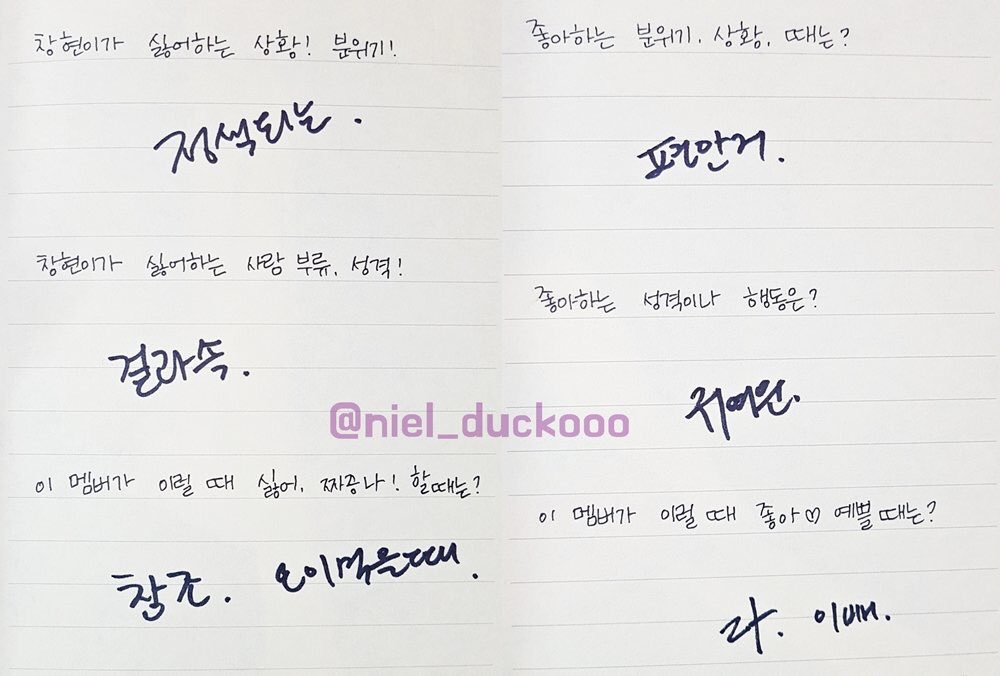 창현이가 싫어하는 상황! 분위기!
정색되는.
창현이가 싫어하는 사람 부류, 성격!
이 멤버가 이럴 때 싫어, 짜증나! 할때는?
창조. 오이먹을때.
좋아하는 분위기, 상황, 때는?
편안거.
좋아하는 성격이나 행동은?
귀여운.
이 멤버가 이럴 때 좋아♡ 예쁠때는?
다. 이뻐.
@niel_duckooo